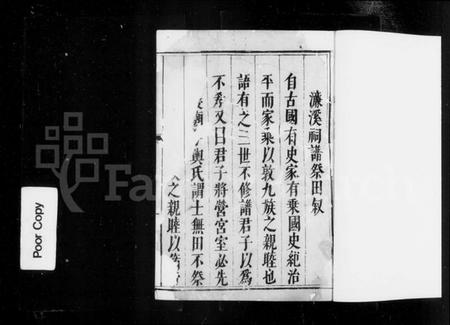 濂溪祠譜祭田叙
自古國有史家有乘國史治
平而家乘以敦九族之親睦也
語有之三世不修譜君子以爲
不孝又曰君子將營宮室必先
輿氏謂士無田不祭
之親睦以
Poor Copy